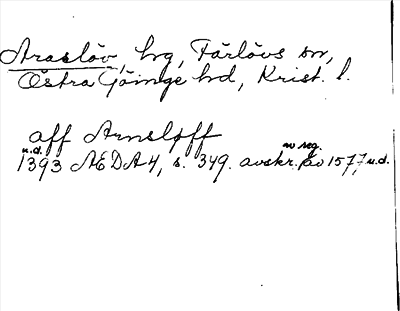 Araslöv, hg, Färlövs sn,
Östra Göinge hd, Krist. l.
aff Arnsløff
u.d. av reg.
1393 ÆDA 4, s. 349. avskr. av 1577, u.d.